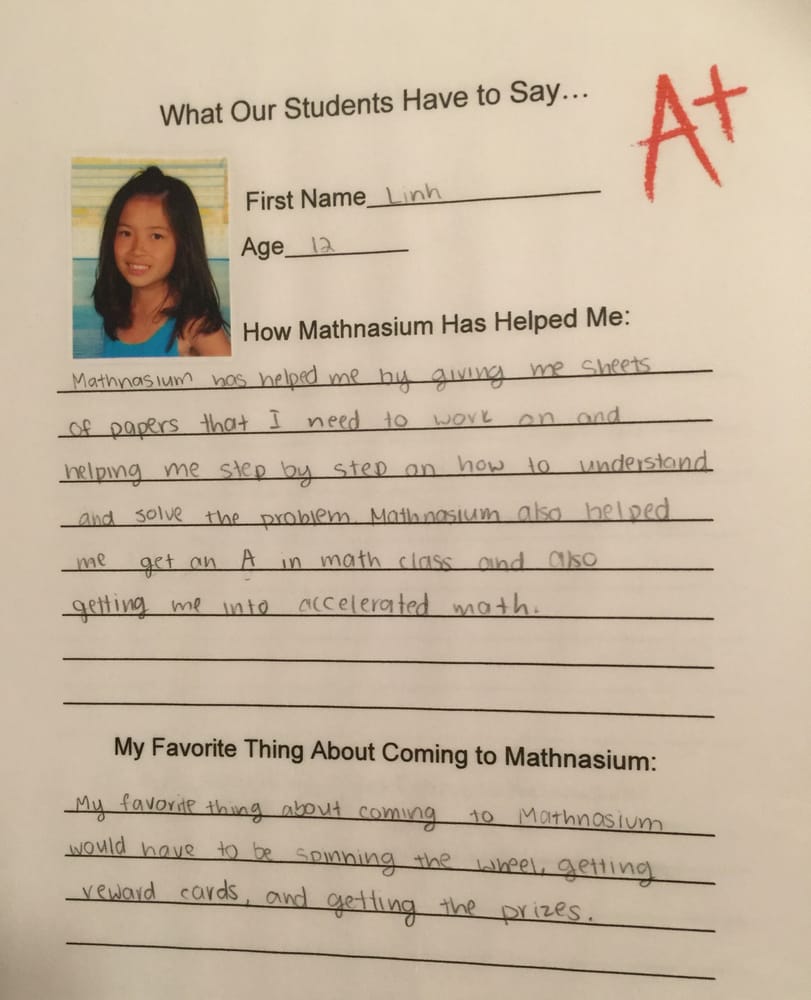 What Our Students Have to Say...
A+
First Name Linh
Age 12
How Mathnasium Has Helped Me:
Mathnasium has helped me by giving me sheets
of papers that I need to work on and
helping me step by step on how to understand
and solve the problem. Mathnasium also helped
me get an A in math class and also
getting me into accelerated math.
My Favorite Thing About Coming to Mathnasium:
My favorite thing about coming to Mathnasium
would have to be spinning the wheel, getting
reward cards, and getting the prizes.